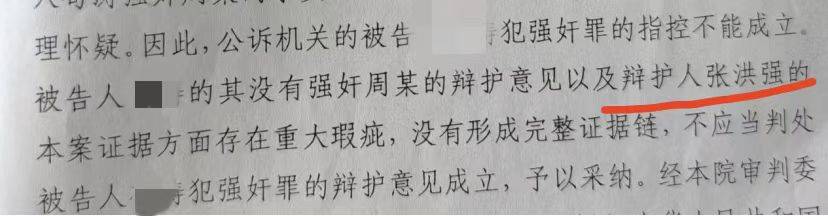 理怀疑。因此，公诉机关的被告 犯强奸罪的指控不能成立。
被告人 的其没有强奸周某的辩护意见以及辩护人张洪强的
本案证据方面存在重大瑕疵，没有形成完整证据链，不应当判处
被告人 犯强奸罪的辩护意见成立，予以采纳。经本院审判委